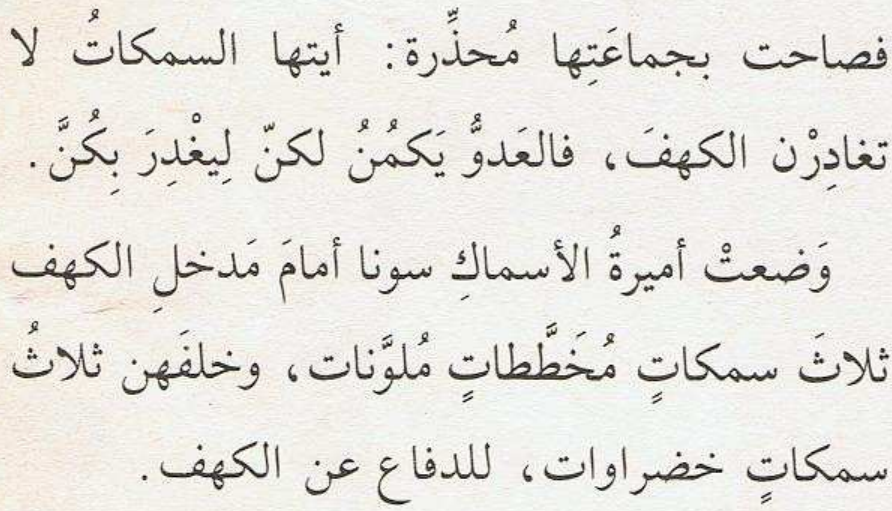 فصاحت بجماعَتِها مُحذِّرة: أيتها السمكاتُ لا
تغادِرْن الكهفَ، فالعَدوُّ يَكمُنُ لكنّ لِيغْدِرَ بِكُنَّ.
وَضعتْ أميرةُ الأسماكِ سونا أمامَ مَدخلِ الكهف
ثلاثَ سمكاتٍ مُخَطَّطاتٍ مُلوَّنات، وخلفَهن ثلاثُ
سمكاتٍ خضراوات، للدفاع عن الكهف.